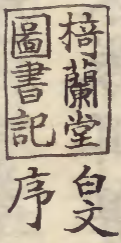 椅蘭堂
圖書記
白文
序